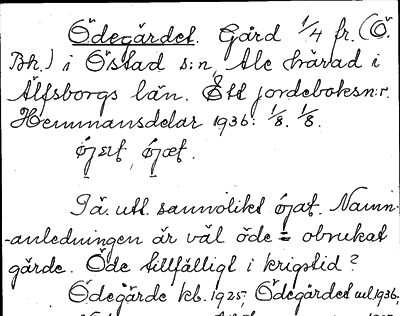 Ödegärdet. Gård 1/4 fr. (Ö.
Bh.) i Östad s:n, Ale härad i
Älfsborgs län. Ett jordeboksn:r.
Hemmansdelar 1936: 1/8. 1/8.
På. utt. sannolikt Namn-
-anledningen är väl öde = obrukat
gärde. Öde tillfälligt i krigstid?
Ödegärde kb. 1925, Ödegärdet 1936,